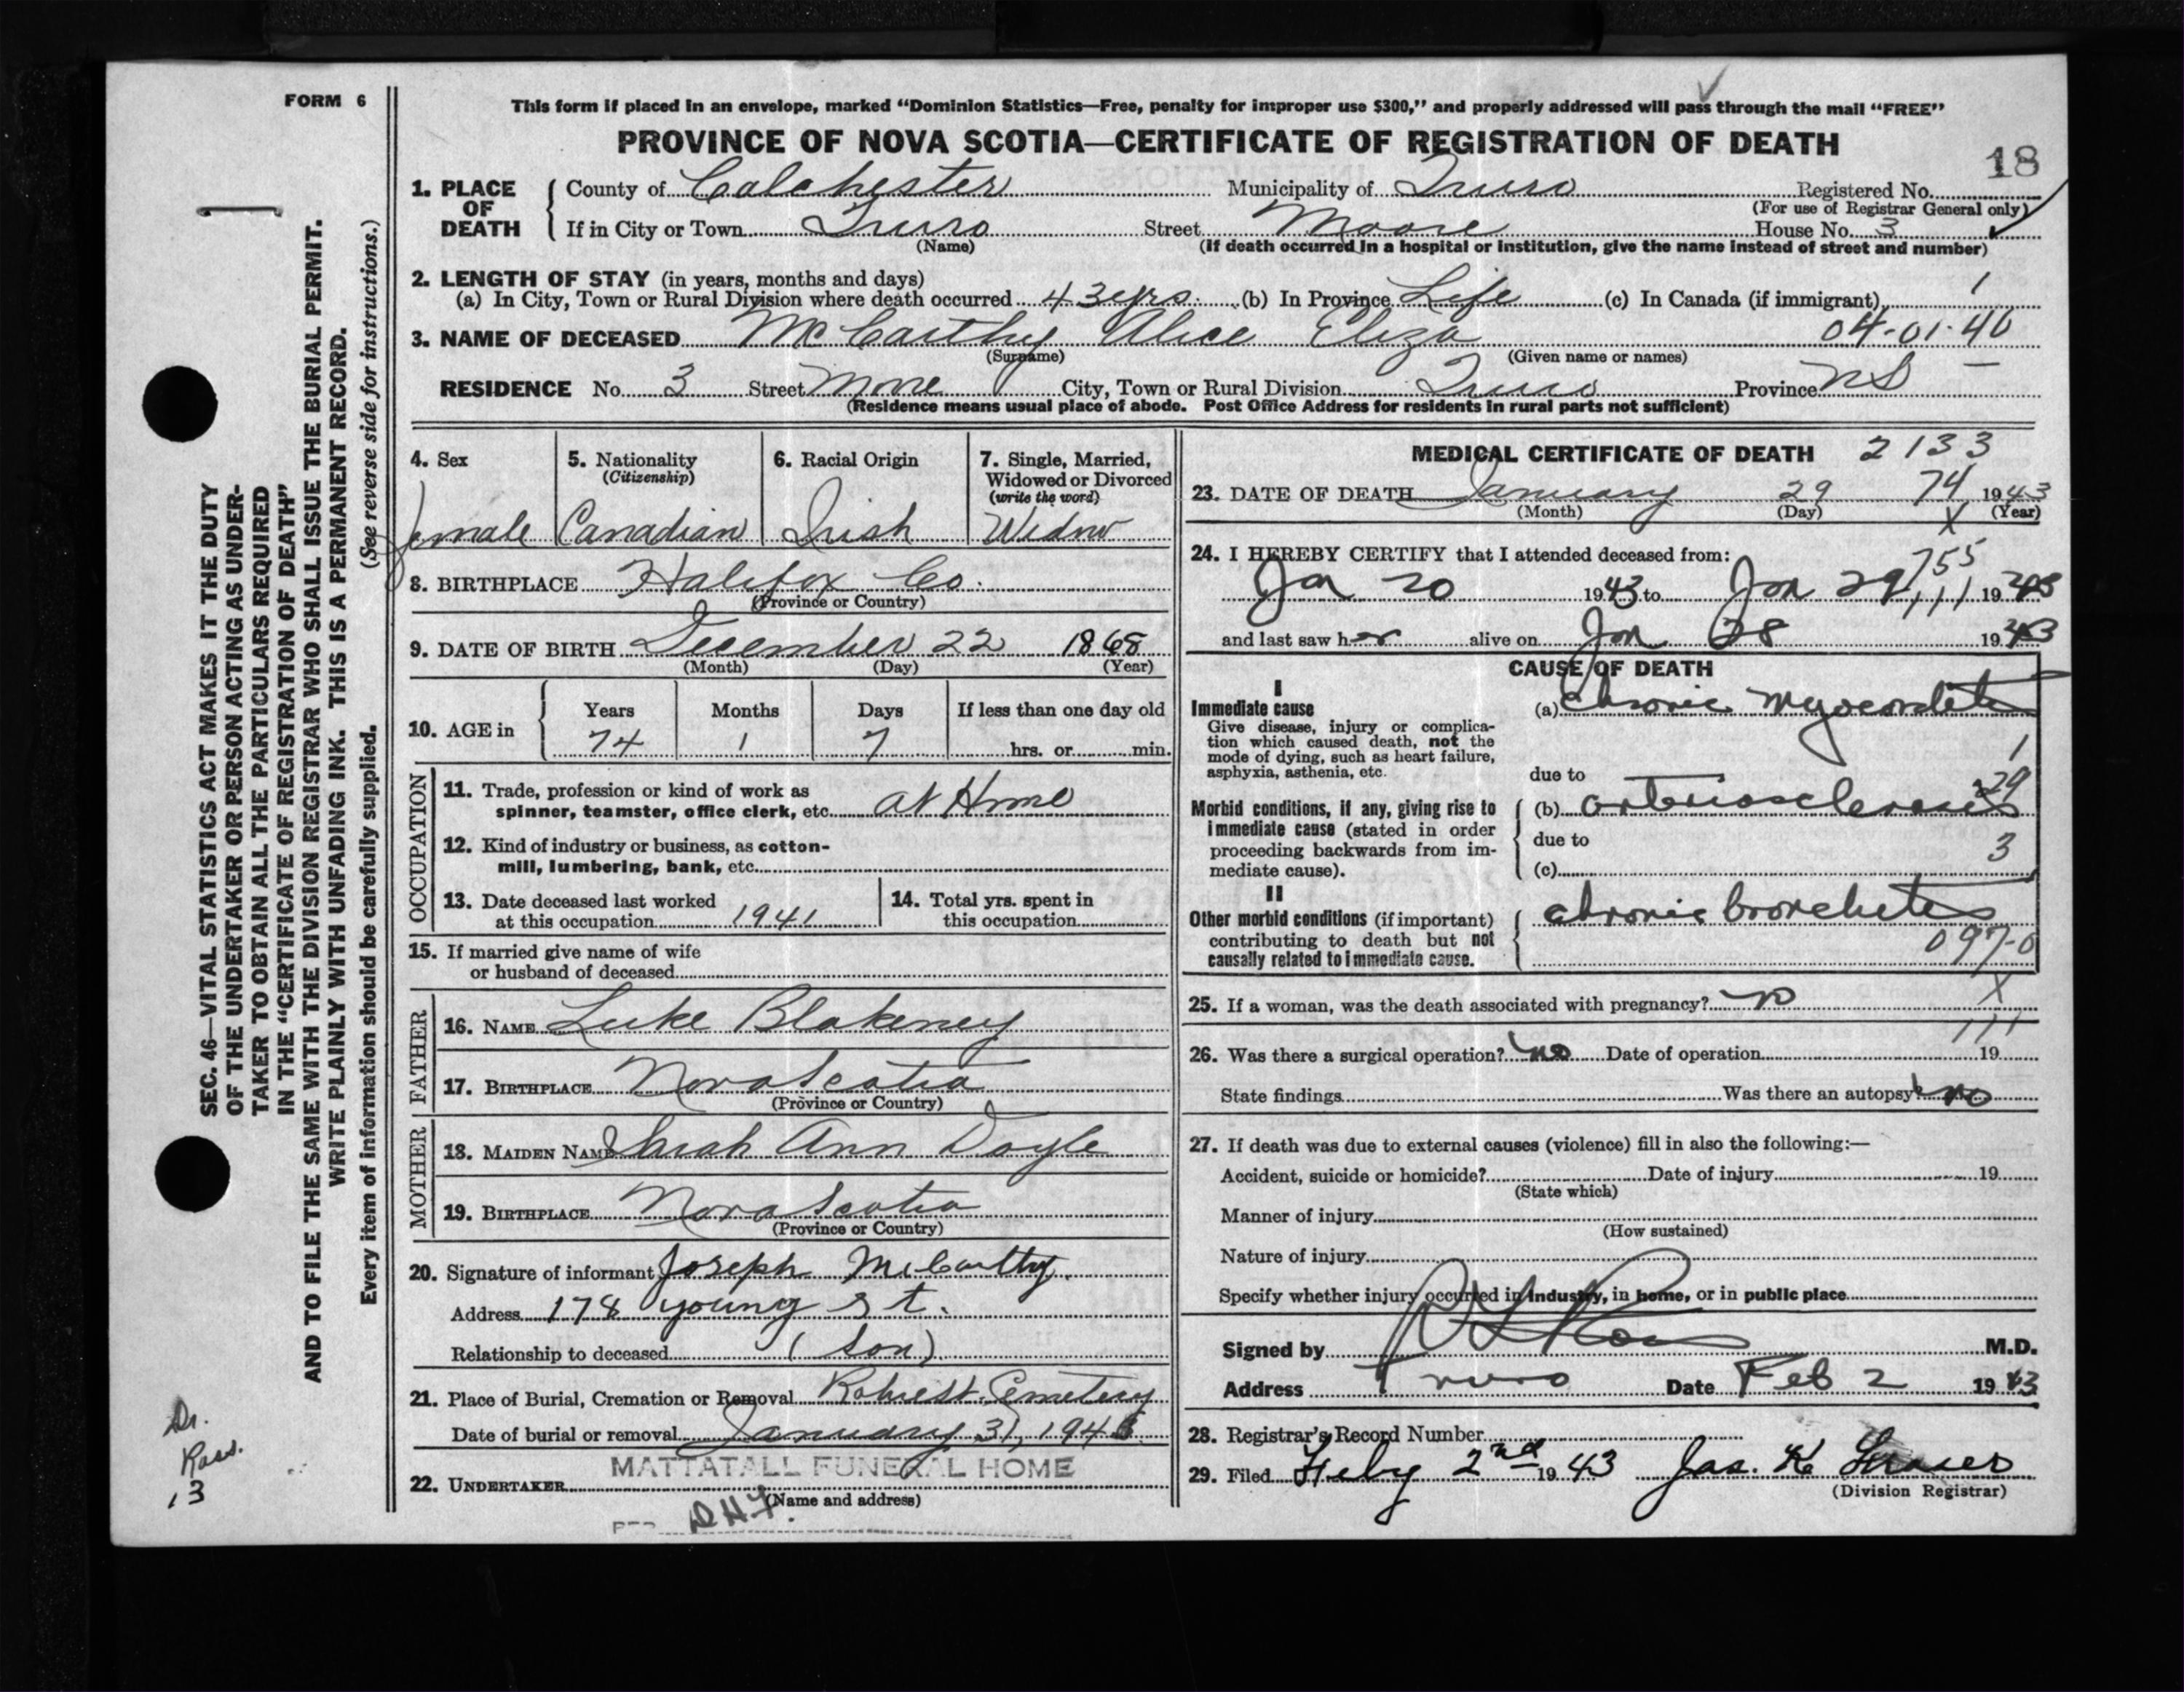 FORM 6
This form if placed in an envelope, marked “Dominion Statistics—Free, penalty for improper use $300,” and properly addressed will pass through the mail “FREE”
PROVINCE OF NOVA SCOTIA—CERTIFICATE OF REGISTRATION OF DEATH
18
1. PLACE OF DEATH County of Colchester Municipality of Truro Registered No.
(For use of Registrar General only)
If in City or Town Truro Street Moore House No. 3
(Name) (If death occurred in a hospital or institution, give the name instead of street and number)
2. LENGTH OF STAY (in years, months and days)
(a) In City, Town or Rural Division where death occurred 43 yrs. (b) In Province Life (c) In Canada (if immigrant) 1
3. NAME OF DECEASED McCarthy Alice Eliza 04-01-40
(Surname) (Given name or names)
RESIDENCE No. 3 Street Moore City, Town or Rural Division Truro Province NS
(Residence means usual place of abode. Post Office Address for residents in rural parts not sufficient)
4. Sex 5. Nationality (Citizenship) 6. Racial Origin 7. Single, Married, Widowed or Divorced (write the word)
female Canadian Irish Widow
8. BIRTHPLACE Halifax Co.
(Province or Country)
9. DATE OF BIRTH December 22 1868
(Month) (Day) (Year)
10. AGE in Years Months Days If less than one day old
74 1 7 hrs. or min.
OCCUPATION
11. Trade, profession or kind of work as
spinner, teamster, office clerk, etc. at Home
12. Kind of industry or business, as cotton-
mill, lumbering, bank, etc.
13. Date deceased last worked at this occupation 1941 14. Total yrs. spent in this occupation
15. If married give name of wife
or husband of deceased
FATHER
16. NAME Luke Blakeney
17. BIRTHPLACE Nova Scotia
(Province or Country)
MOTHER
18. MAIDEN NAME Sarah Ann Doyle
19. BIRTHPLACE Nova Scotia
(Province or Country)
20. Signature of informant Joseph McCarthy
Address 178 young st.
Relationship to deceased (son)
21. Place of Burial, Cremation or Removal Cemetery
Date of burial or removal January 31, 1943
22. UNDERTAKER MATTATALL FUNERAL HOME
(Name and address)
MEDICAL CERTIFICATE OF DEATH 2133
23. DATE OF DEATH January 29 74 1943
(Month) (Day) X (Year)
24. I HEREBY CERTIFY that I attended deceased from: 755
Jan 20 1943 to Jan 29 111 1943
and last saw her alive on Jan 28 1943
CAUSE OF DEATH
I
Immediate cause (a) Chronic Myocarditis
Give disease, injury or complica-
tion which caused death, not the
mode of dying, such as heart failure,
asphyxia, asthenia, etc.
1
due to
29
Morbid conditions, if any, giving rise to (b) arteriosclerosis
immediate cause (stated in order
proceeding backwards from im- due to 3
mediate cause). (c)
II
Other morbid conditions (if important) chronic bronchitis
contributing to death but not 097-0
causally related to immediate cause.
25. If a woman, was the death associated with pregnancy? no X
111
26. Was there a surgical operation? no Date of operation 19
State findings Was there an autopsy? no
27. If death was due to external causes (violence) fill in also the following:—
Accident, suicide or homicide? Date of injury 19
(State which)
Manner of injury
(How sustained)
Nature of injury
Specify whether injury occurred in Industry, in home, or in public place
Signed by Ross M.D.
Address Truro Date Feb 2 1943
28. Registrar's Record Number
29. Filed Feby 2nd 1943 Jas. K Fraser
(Division Registrar)
SEC. 46—VITAL STATISTICS ACT MAKES IT THE DUTY
OF THE UNDERTAKER OR PERSON ACTING AS UNDER-
TAKER TO OBTAIN ALL THE PARTICULARS REQUIRED
IN THE “CERTIFICATE OF REGISTRATION OF DEATH”
AND TO FILE THE SAME WITH THE DIVISION REGISTRAR WHO SHALL ISSUE THE BURIAL PERMIT.
WRITE PLAINLY WITH UNFADING INK. THIS IS A PERMANENT RECORD.
Every item of information should be carefully supplied. (See reverse side for instructions.)
Dr.
Ross.
13